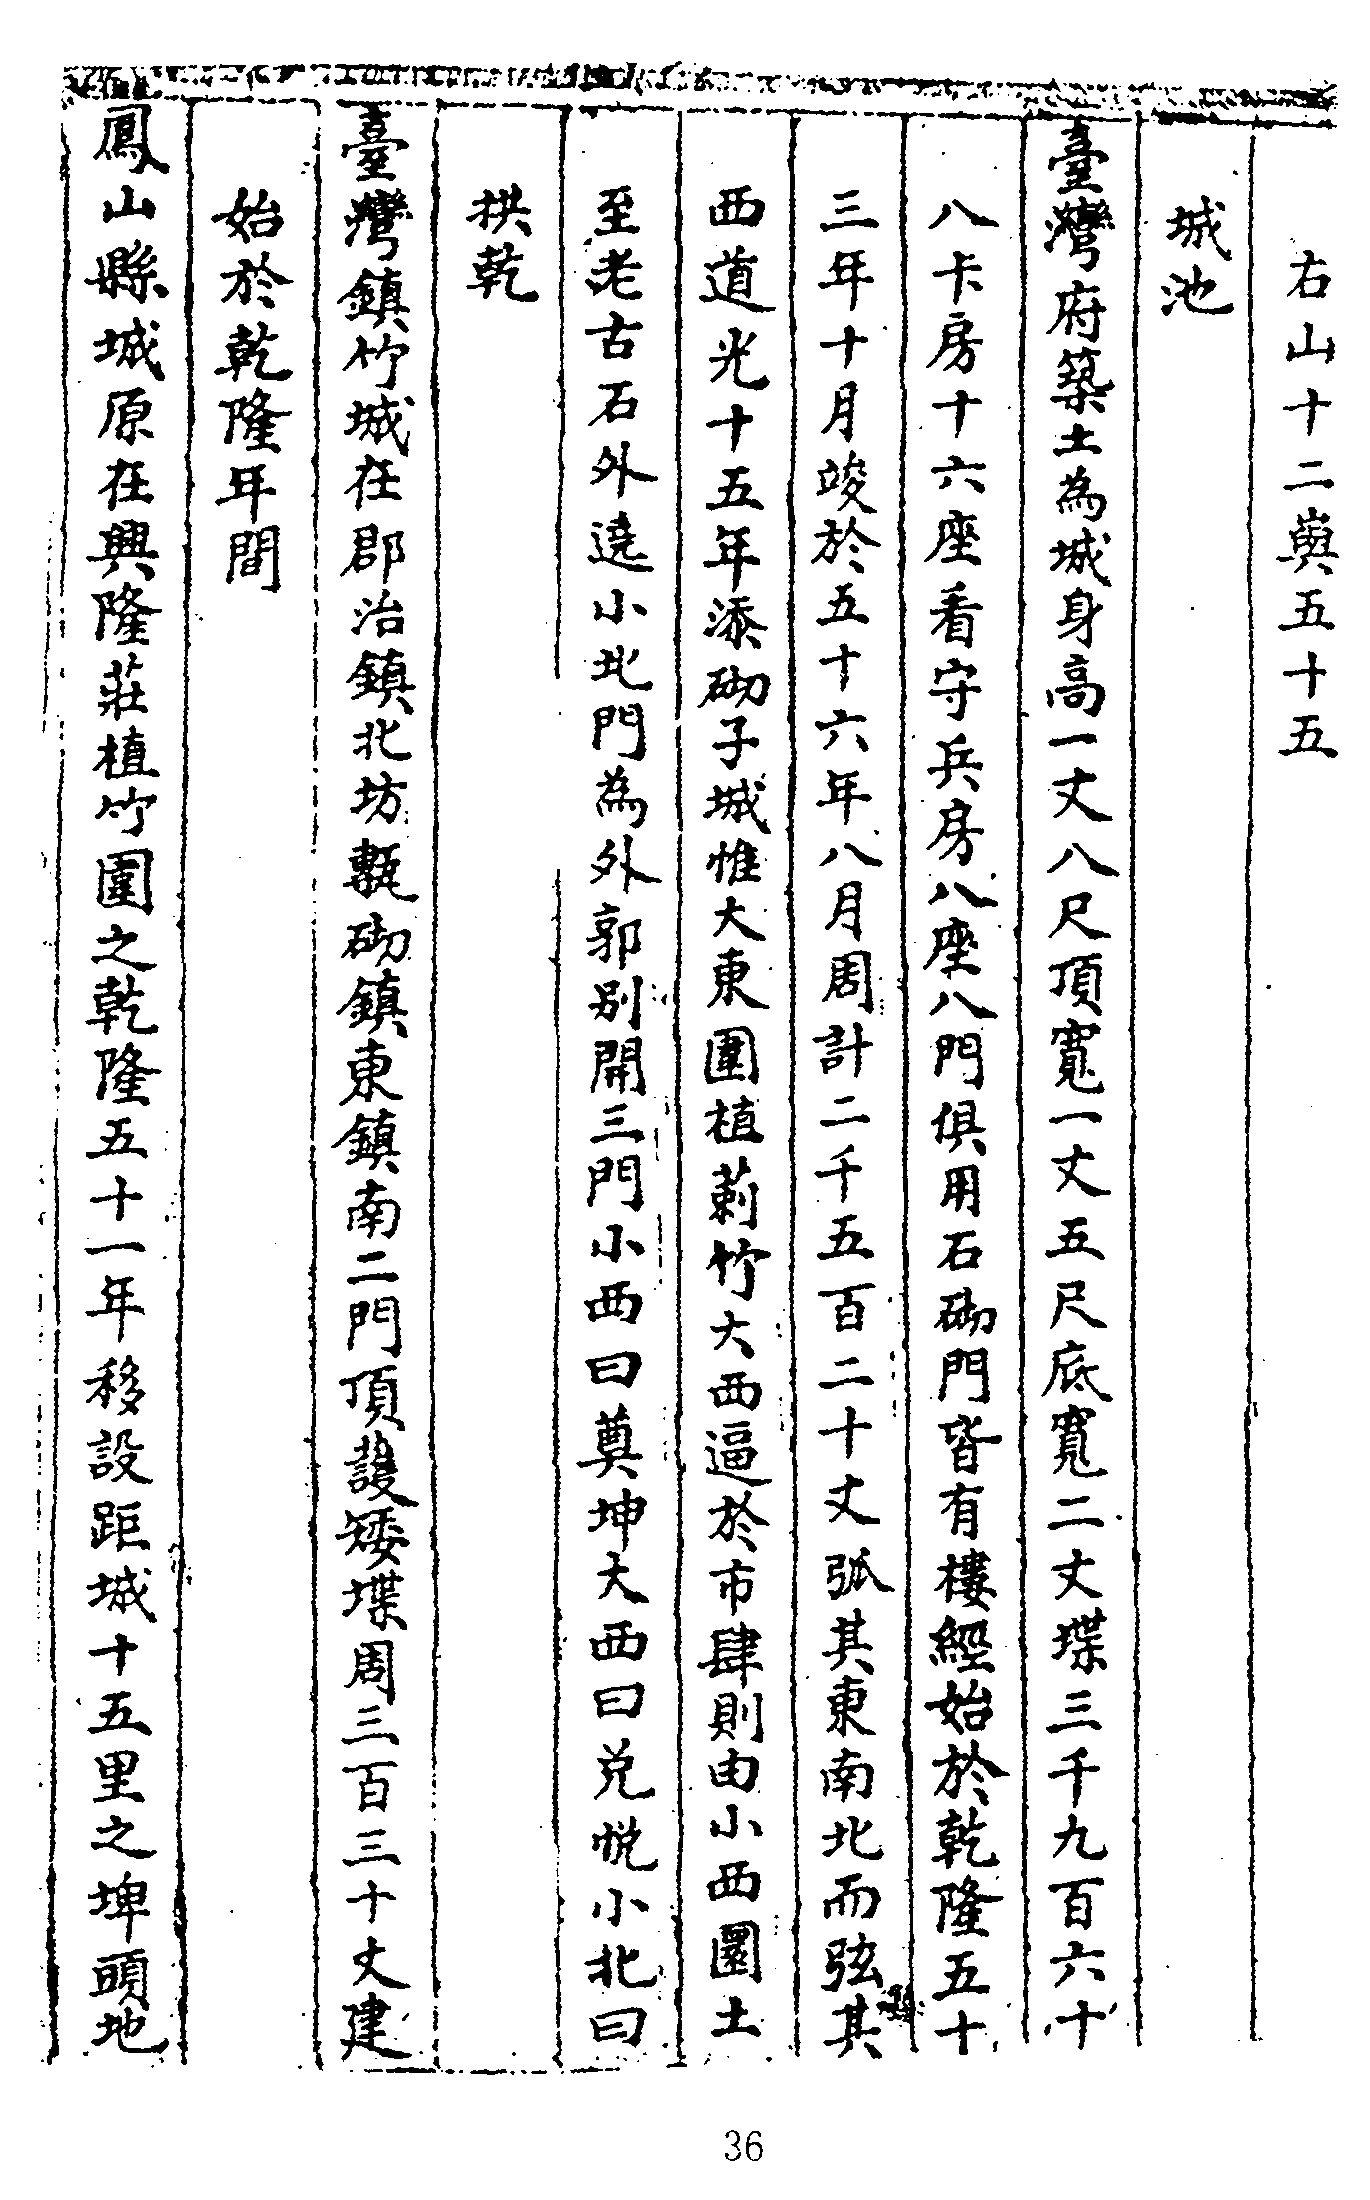 右山十二嶼五十五
城池
臺灣府築土為城身高一丈八尺頂寬一丈五尺底寬二丈堞三千九百六十
八卡房十六座看守兵房八座八門俱用石砌門皆有樓經始於乾隆五十
三年十月竣於五十六年八月周計二千五百二十丈弧其東南北而弦其
西道光十五年添砌子城惟大東圍植莿竹大西逼於市肆則由小西圜土
至老古石外遶小北門為外郭別開三門小西曰奠坤大西曰兌悅小北曰
拱乾
臺灣鎮竹城在郡治鎮北坊甎砌鎮東鎮南二門頂護矮堞周三百三十丈建
始於乾隆年間
鳳山縣城原在興隆莊植竹圍之乾隆五十一年移設距城十五里之埤頭地
36